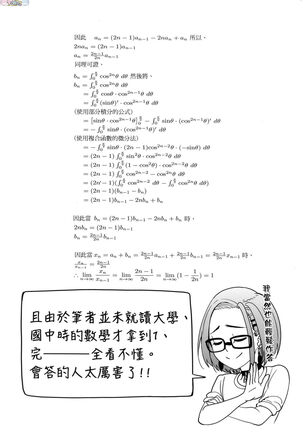 因此 aₙ = (2n − 1)aₙ₋₁ − 2naₙ + aₙ 所以、
2naₙ = (2n − 1)aₙ₋₁
aₙ = \frac{2n-1}{2n}aₙ₋₁
同理可證、
bₙ = ∫₀^{\frac{π}{2}} cos²ⁿθ dθ 然後將、
bₙ = ∫₀^{\frac{π}{2}} cos²ⁿθ dθ
= ∫₀^{\frac{π}{2}} cosθ · cos²ⁿ⁻¹θ dθ
= ∫₀^{\frac{π}{2}} (sinθ)′ · cos²ⁿ⁻¹θ dθ
(使用部分積分的公式)
= [sinθ · cos²ⁿ⁻¹θ]₀^{\frac{π}{2}} − ∫₀^{\frac{π}{2}} sinθ · (cos²ⁿ⁻¹θ)′ dθ
= − ∫₀^{\frac{π}{2}} sinθ · (cos²ⁿ⁻¹θ)′ dθ
(使用複合函數的微分法)
= − ∫₀^{\frac{π}{2}} sinθ · (2n − 1)cos²ⁿ⁻²θ · (−sinθ) dθ
= (2n − 1) ∫₀^{\frac{π}{2}} sin²θ · cos²ⁿ⁻²θ dθ
= (2n − 1) ∫₀^{\frac{π}{2}} (1 − cos²θ) · cos²ⁿ⁻²θ dθ
= (2n − 1) ∫₀^{\frac{π}{2}} cos²ⁿ⁻²θ − cos²ⁿθ dθ
= (2n − 1)(∫₀^{\frac{π}{2}} cos²ⁿ⁻²θ dθ − ∫₀^{\frac{π}{2}} cos²ⁿθ dθ)
= (2n − 1)(bₙ₋₁ − bₙ)
= (2n − 1)bₙ₋₁ − 2nbₙ + bₙ
因此當 bₙ = (2n − 1)bₙ₋₁ − 2nbₙ + bₙ 時、
2nbₙ = (2n − 1)bₙ₋₁
bₙ = \frac{2n-1}{2n}bₙ₋₁
因此當 xₙ = aₙ + bₙ = \frac{2n-1}{2n}aₙ₋₁ + \frac{2n-1}{2n}bₙ₋₁ = \frac{2n-1}{2n}xₙ₋₁ 時、
\frac{xₙ}{xₙ₋₁} = \frac{2n-1}{2n}
∴ lim_{n→∞} \frac{xₙ}{xₙ₋₁} = lim_{n→∞} \frac{2n − 1}{2n} = lim_{n→∞} (1 − \frac{1}{2n}) = 1
我當然也能輕鬆作答
且由於筆者並未就讀大學、
國中時的數學才拿到1、
完————全看不懂。
會答的人太厲害了!!